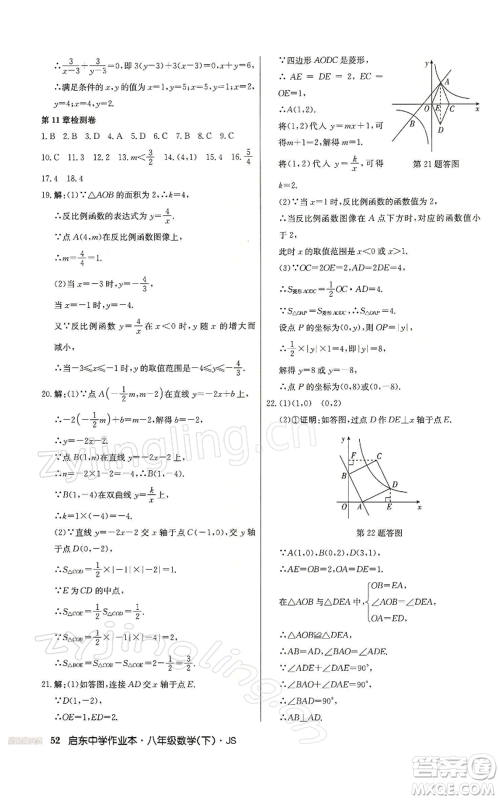 ∴3/(x−3)+3/(y−3)=0,即3(y−3)+3(x−3)=0,∴x+y=6,
∴满足条件的x,y的值为x=5,y=1;x=4,y=2;x=2,
y=4;x=1,y=5.
第11章检测卷
1.B 2.D 3.A 4.C 5.D 6.B 7.C 8.B 9.D
10.C 11.3 12.4 13.m<3/2 14.(4,1) 15.6 16.5/4
17.4 18.4
19.解:(1)∵△AOB的面积为2,∴k=4,
∴反比例函数的表达式为y=4/x.
∵点A(4,m)在反比例函数图像上,
∴m=4/4=1.
(2)∵当x=−3时,y=−4/3,
当x=−1时,y=−4.
又∵反比例函数y=4/x在x<0时,y随x的增大而
减小,
∴当−3≤x≤−1时,y的取值范围是−4≤y≤−4/3.
20.解:(1)∵点A(−1/2m,m−2)在直线y=−2x+b上,
∴−2(−1/2m)+b=m−2,∴b=−2,
∴y=−2x−2.
∵点B(1,n)在直线y=−2x−2上,
∴n=−2×1−2=−4,∴B(1,−4).
∵B(1,−4)在双曲线y=k/x上,
∴k=1×(−4)=−4.
(2)∵直线y=−2x−2交x轴于点C,交y轴于点D,
∴C(−1,0),D(0,−2),
∴S△COD=1/2×|−1|×|−2|=1.
∵E为CD的中点,
∴S△COE=1/2S△COD=1/2.
∵S△COB=1/2×|−1|×|−4|=2,
∴S△BOE=S△COB−S△COE=2−1/2=3/2.
21.解:(1)如答图,连接AD交x轴于点E.
∵四边形AODC是菱形,
∴AE=DE=2,EC=
OE=1,
∴A(1,2).
将(1,2)代入y=mx+1,可
得m=1.
将(1,2)代入y=k/x,可得
k=2.
第21题答图
(2)∵当x=1时,反比例函数的值为2,
∴当反比例函数图像在点A下方时,对应的函数值小
于2,
此时x的取值范围是x<0或x>1.
(3)∵OC=2OE=2,AD=2DE=4,
∴S菱形AODC=1/2OC·AD=4.
∵S△OAP=S菱形AODC,∴S△OAP=4.
设点P的坐标为(0,y),则1/2×1×|y|=4,
解得y=8或y=−8,
∴点P的坐标为(0,8)或(0,−8).
22.(1)(1,0) (0,2)
(2)①证明:如答图,过点D作DE⊥x轴于点E.
第22题答图
∵A(1,0),B(0,2),D(3,1),
∴AE=OB=2,OA=DE=1.
在△AOB与△DEA中,{OB=EA,∠AOB=∠DEA,OA=ED,
∴△AOB≌△DEA,
∴∠ABO=∠DAE.
∵∠ABO+∠BAO=90°,
∴∠DAE+∠BAO=90°,
∴∠BAD=90°,
52 启东中学作业本·八年级数学(下)·JS
zyjingling.cn